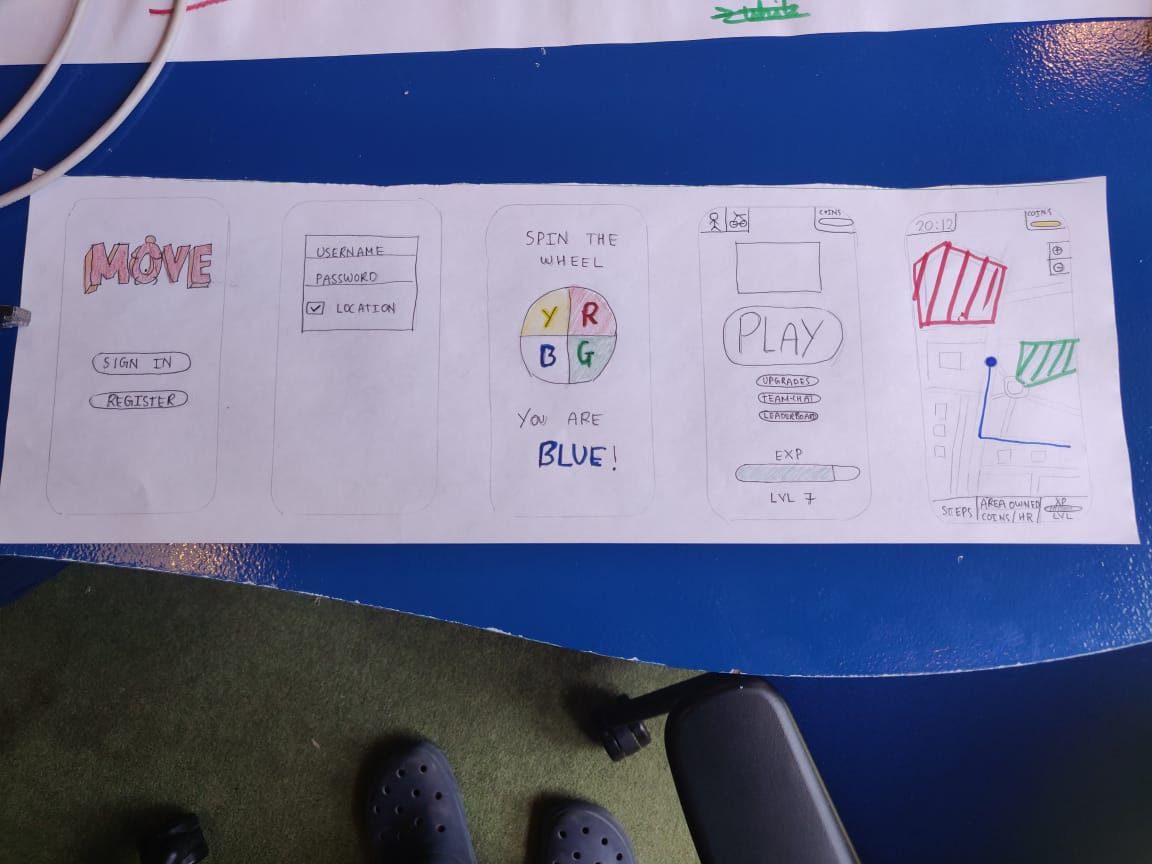 MOVE
SIGN IN
REGISTER
USERNAME
PASSWORD
LOCATION
SPIN THE
WHEEL
Y R
B G
YOU ARE
BLUE!
COINS
PLAY
UPGRADES
TEAM-CHAT
LEADERBOARD
EXP
LVL 7
20:12
COINS
STEPS
AREA OWNED
COINS/HR
XP
LVL